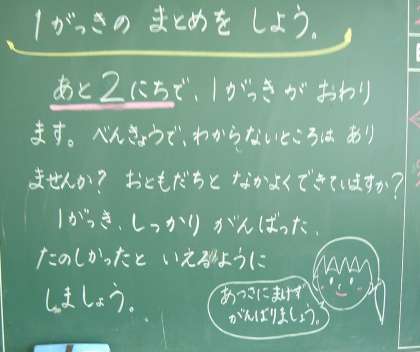 1がっきの まとめを しよう。
あと2にちで、1がっきが おわり
ます。べんきょうで、わからないところは あり
ませんか? おともだちと なかよくできていますか?
1がっき、しっかり がんばった、
たのしかったと いえるように
しましょう。
あつさにまけず
がんばりましょう。